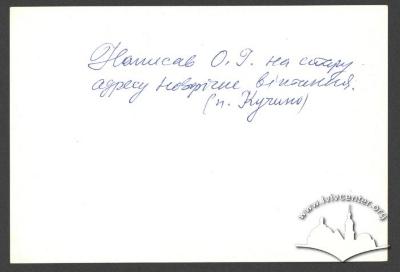 Написав О. Г. на стару
адресу новорічне вітання.
(п. Кучино)
www.lvivcenter.org